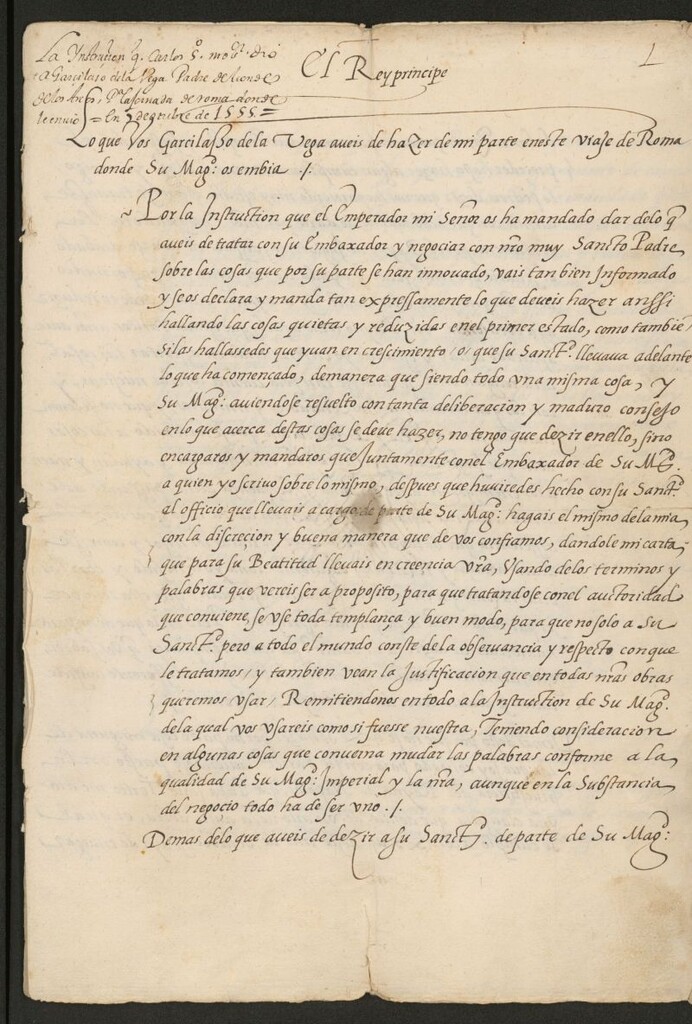 La Ynstruсion q. Carlos 5º. mo
a Garcilaso de la Vega Padre del conde
de los Arcos, Pª la jornada de roma donde
le envió = en 5 de octubre de 1555 =
El Rey príncipe
1
Lo que Vos Garcilasso dela Vega aueis de hazer de mi parte eneste viaje de Roma
donde Su Magᵈ: os embia ./.
~ Por la Instruction que el Emperador mi Señor os ha mandado dar delo q̃
aueis de tratar con su Embaxador y negociar con nr̃o muy Sancto Padre
sobre las cosas que por su parte se han innouado, vais tan bien Informado
y seos declara y manda tan expressamente lo que deueis hazer anssi
hallando las cosas quietas y reduzidas enel primer estado, como tambiē
si las hallassedes que yuan en crescimiento /o/ que su Sanctᵈ. lleuaua adelante
lo que ha començado, demanera que siendo todo vna misma cosa, y
Su Magᵈ: auiendose resuelto con tanta deliberacion y maduro consejo
en lo que acerca destas cosas se deue hazer, no tengo que dezir enello, sino
encargaros y mandaros que Juntamente conel Embaxador de Su Mᵈ.
a quien yo scriuo sobre lo mismo, despues que huuiredes hecho con su Sanctᵈ.
al officio que lleuais a cargo de parte de Su Magᵈ: hagais el mismo dela mia
con la discrecion y buena manera que de vos confiamos, dandole mi carta
que para su Beatitud lleuais en creencia vr̃a, Vsando delos terminos y
palabras que vereis ser a proposito, para que tratandose conel auctoridad
que conuiene, se vse toda templança y buen modo, para que no solo a Su
Sanctᵈ. pero a todo el mundo conste de la obseruancia y respecto con que
le tratamos / y tambien vean la Justificacion que en todas nr̃as obras
queremos vsar / Remitiendonos en todo a la Instruction de Su Magᵈ.
dela qual vos vsareis como si fuesse nuestra, Teniendo consideracion
en algunas cosas que conuerna mudar las palabras conforme a la
qualidad de Su Magᵈ: Imperial y la nr̃a, aunque en la Substancia
del negocio todo ha de ser vno ./.
Demas delo que aueis de dezir a su Sanctᵈ. de parte de Su Magᵈ: